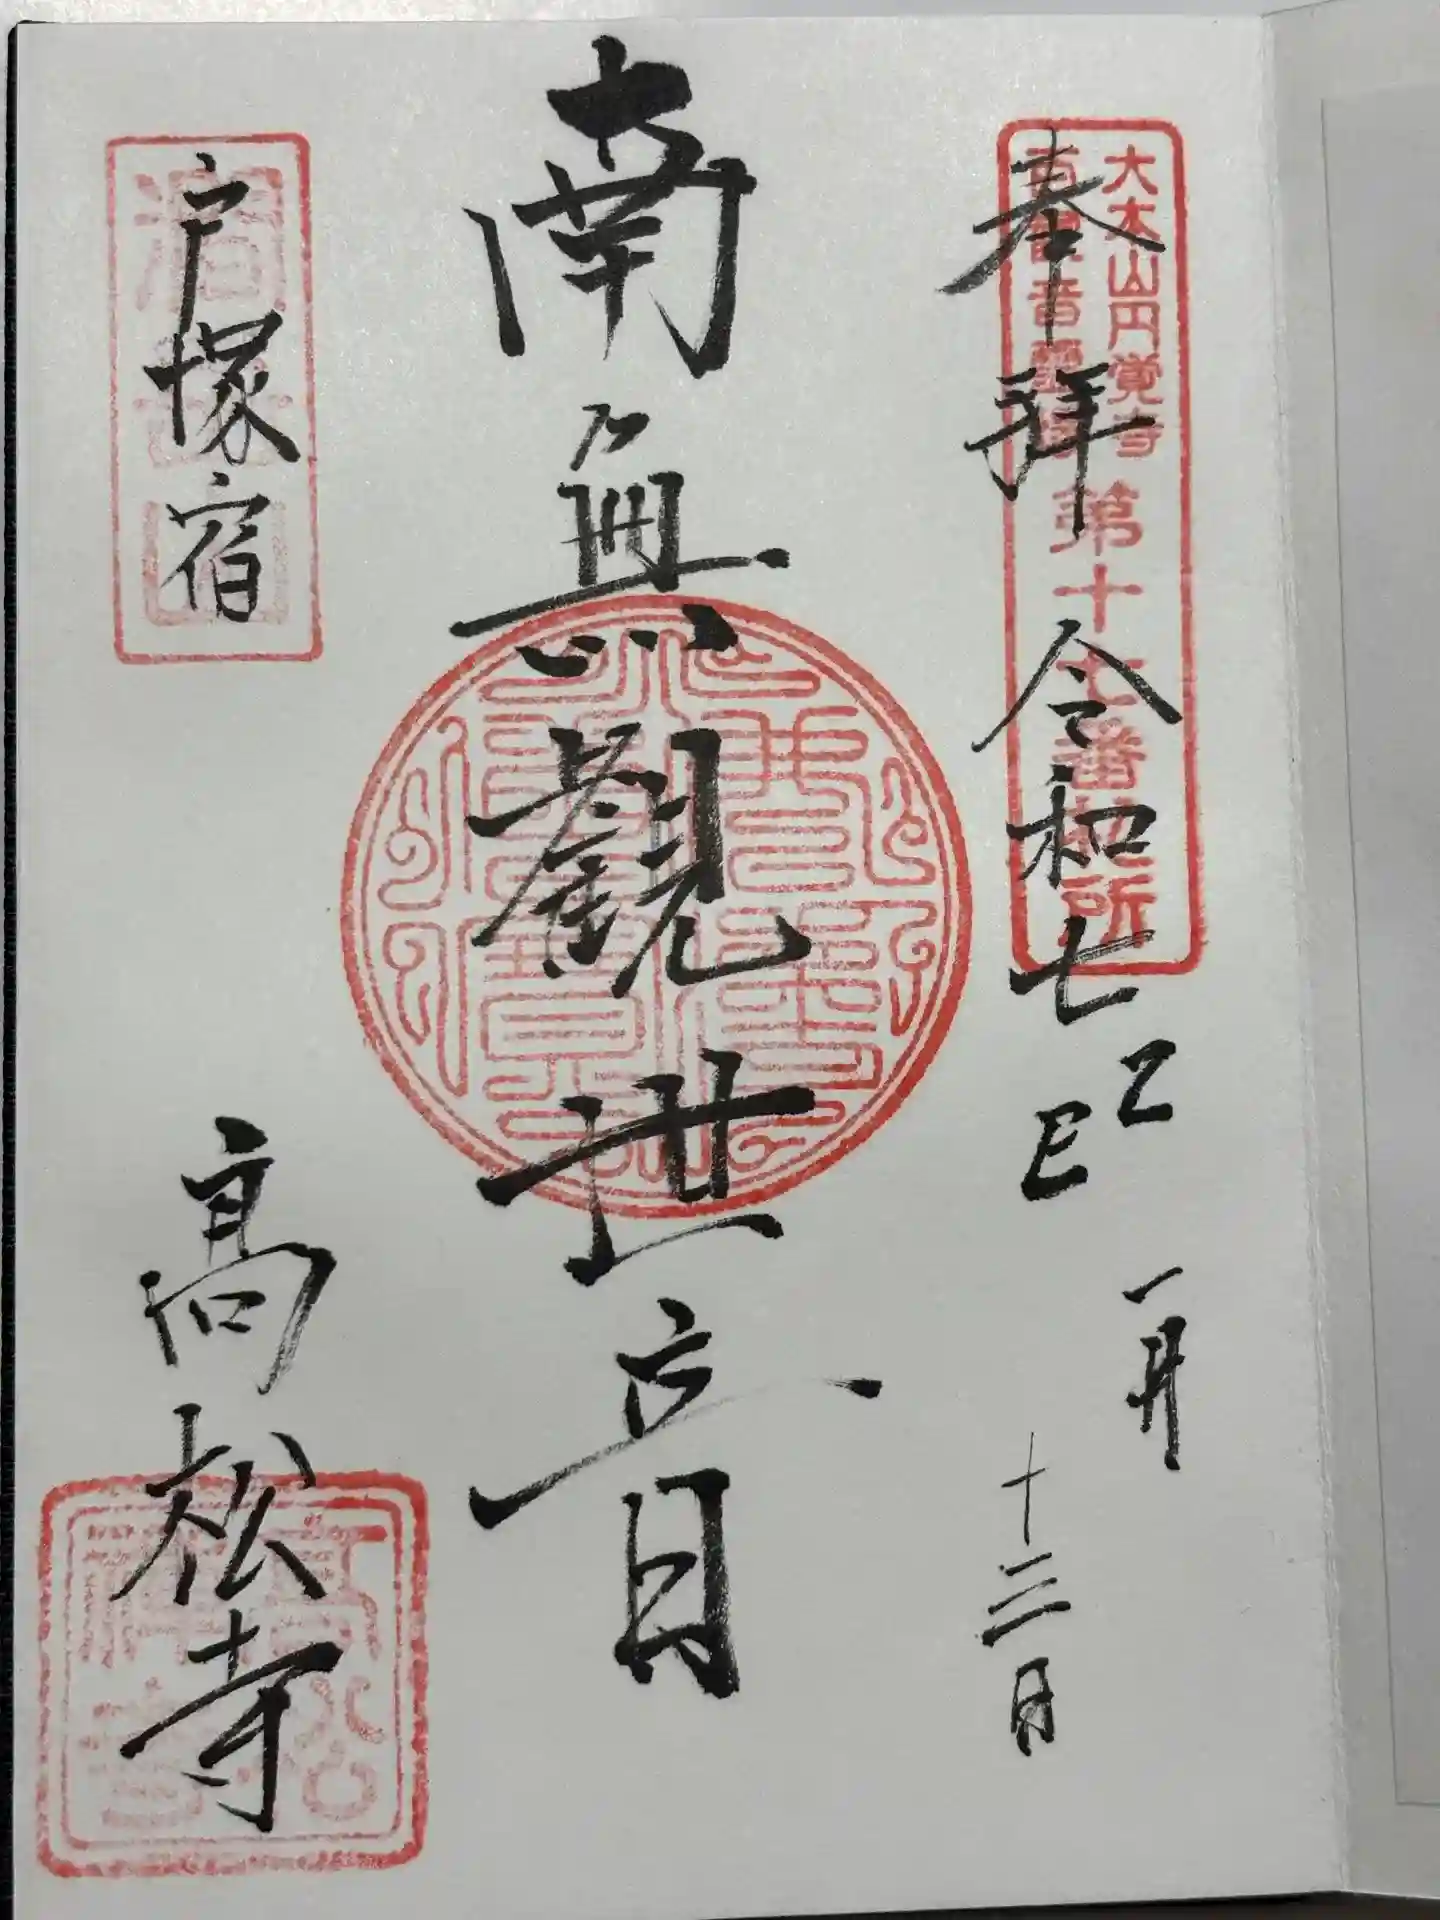 大本山円覚寺
百観音霊場
第十七番札所
奉拝 令和七乙巳 一月 十三日
南無觀世音
戸塚宿
高松寺